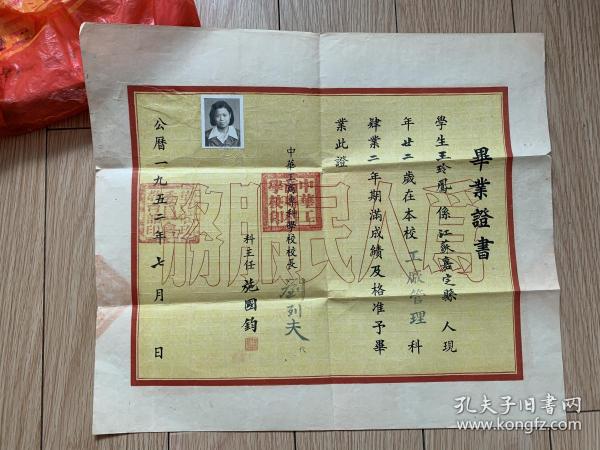 畢業證書
學生王玲鳳係江蘇嘉定縣人現
年廿二歲在本校工廠管理科
肄業二年期滿成績及格准予畢
業此證
中華工商專科學校校長
列夫代
科主任施國鈞
公曆一九五二年七月 日
為人民服務
孔夫子旧书网
kongfz.com